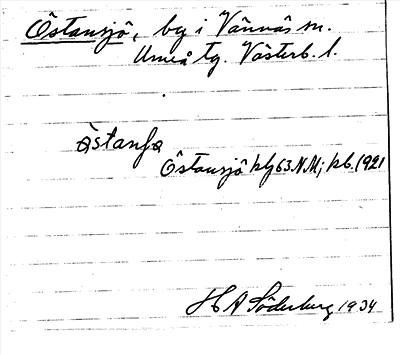 Östansjö, by i Vännäs sn.
Umeå tg. Västerb. l.
Östansjö kbf 63 N.M.; kb. 1921
H A Söderberg 1934